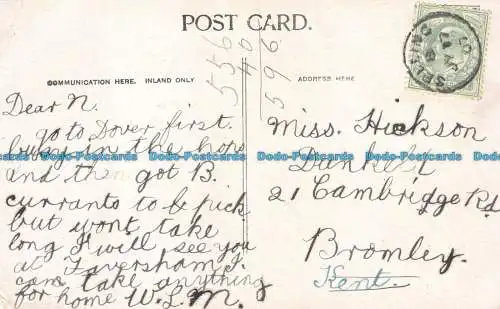 POST CARD.
COMMUNICATION HERE. INLAND ONLY.
ADDRESS HERE
556
40
596
Dear N.
go to Dover first.
busy in the hops
and then got B.
currants to be pick
but wont take
long I will see you
at Faversham J.
can take anything
for home W.L.M.
Miss. Hickson
Dunkeld
21 Cambridge Rd
Bromley.
Kent.
Dodo-Postcards Dodo-Postcards Dodo-Postcards Dodo-Postcards Dodo-Postcards